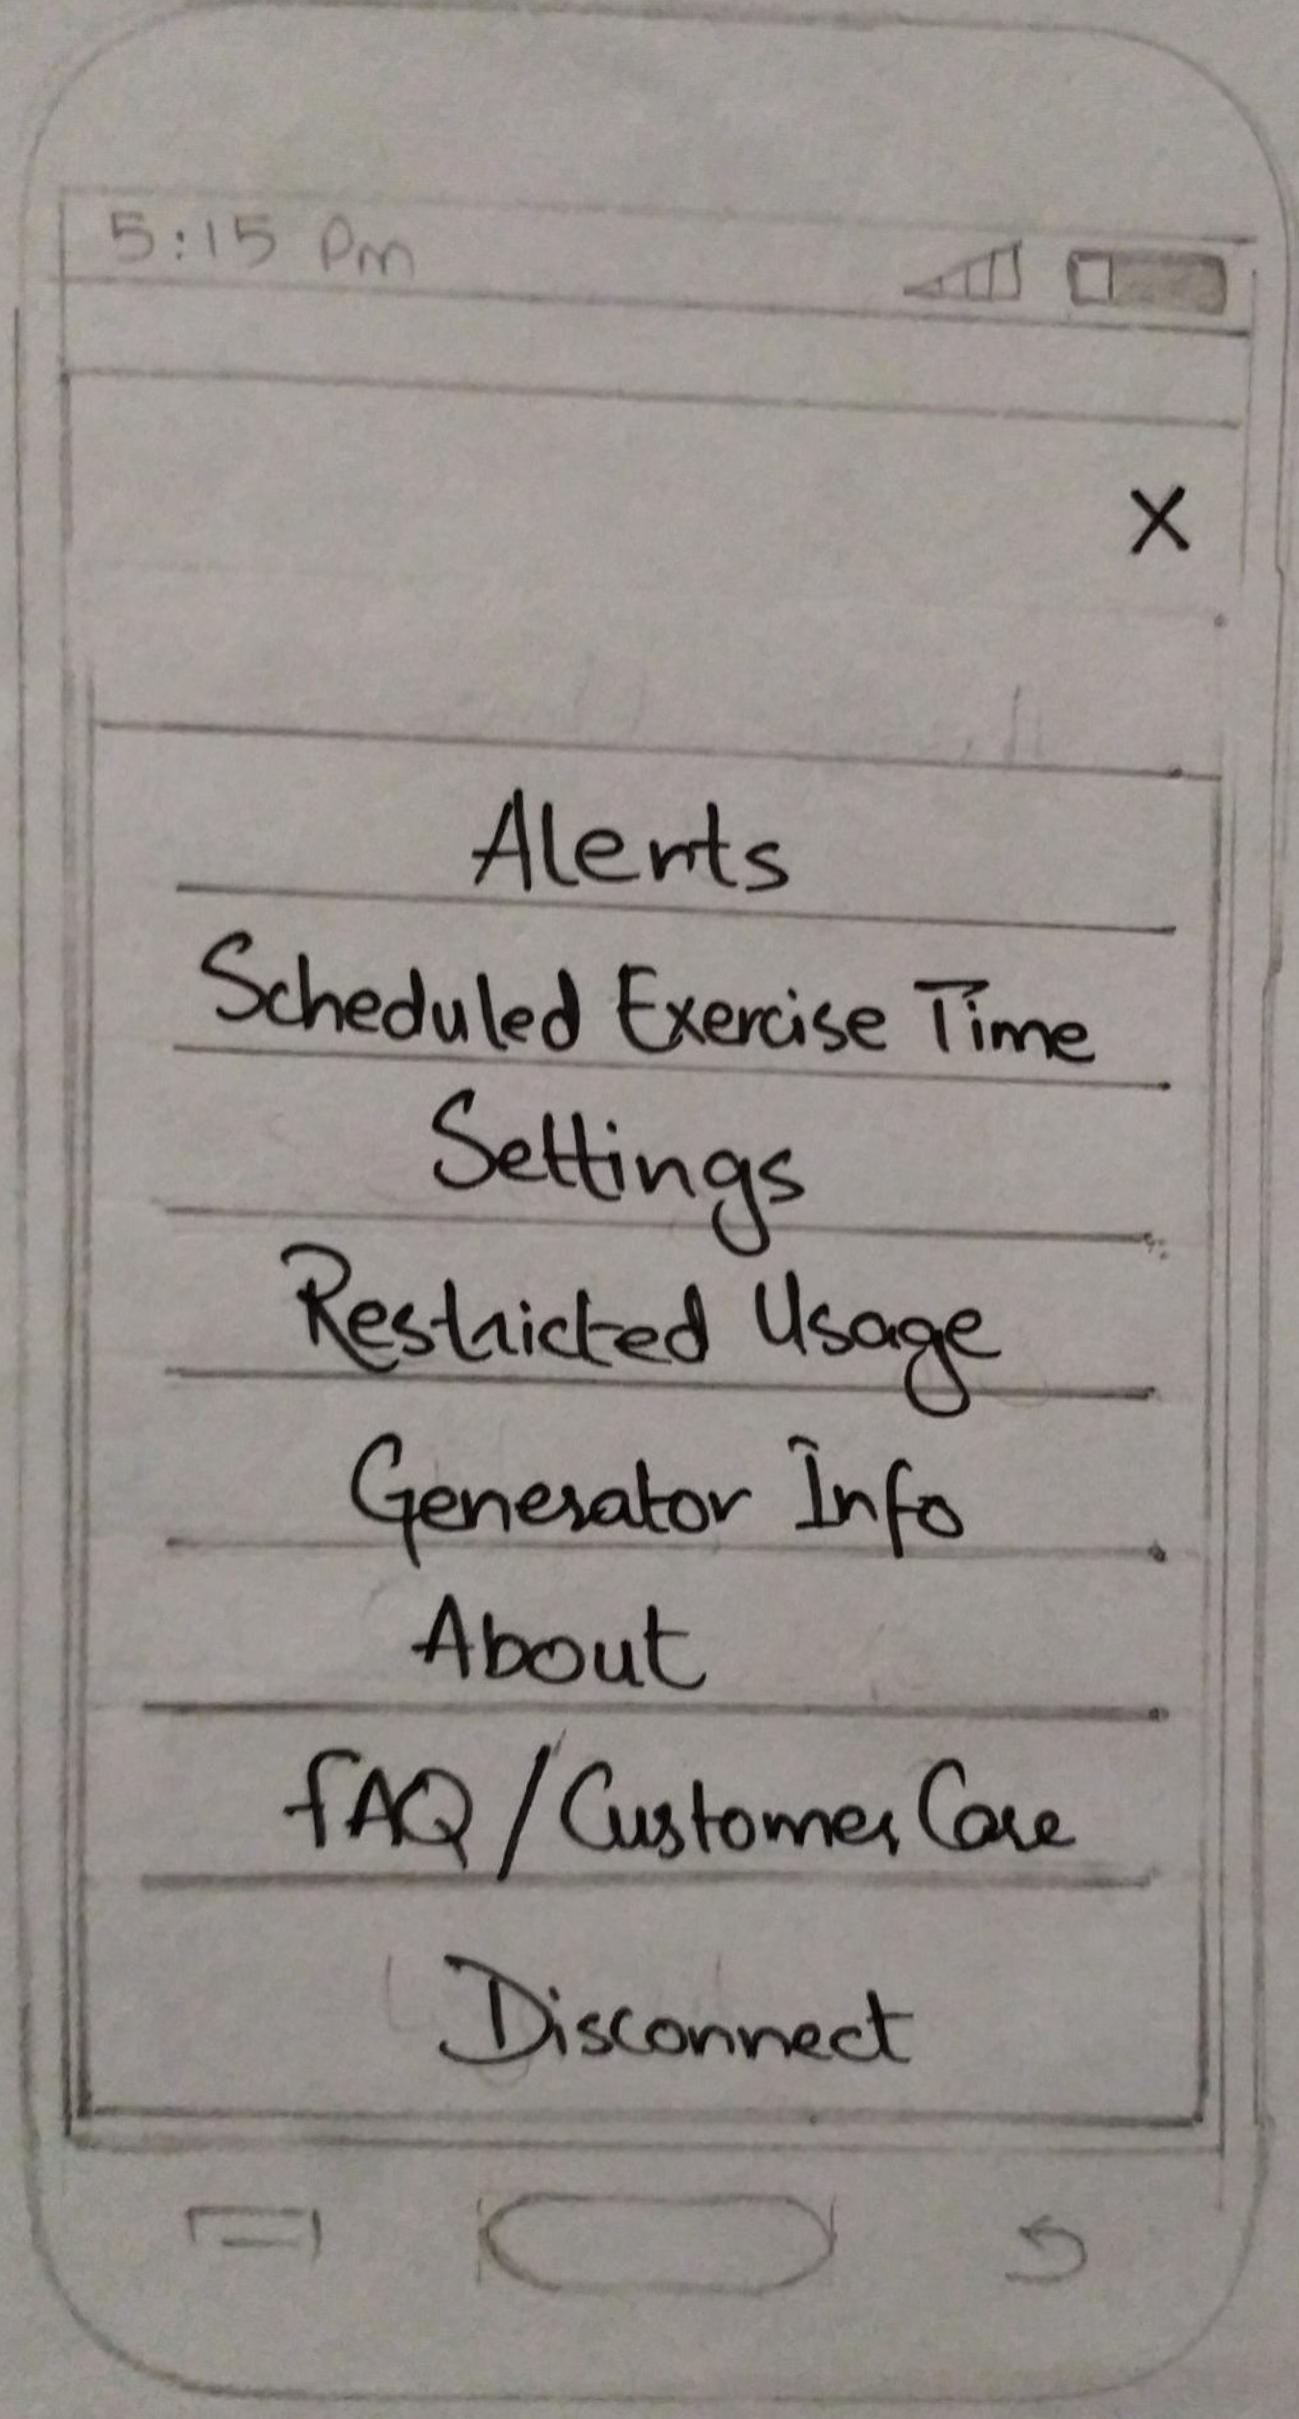 5:15 Pm
X
Alerts
Scheduled Exercise Time
Settings
Restricted Usage
Generator Info
About
fAQ / Customer Care
Disconnect